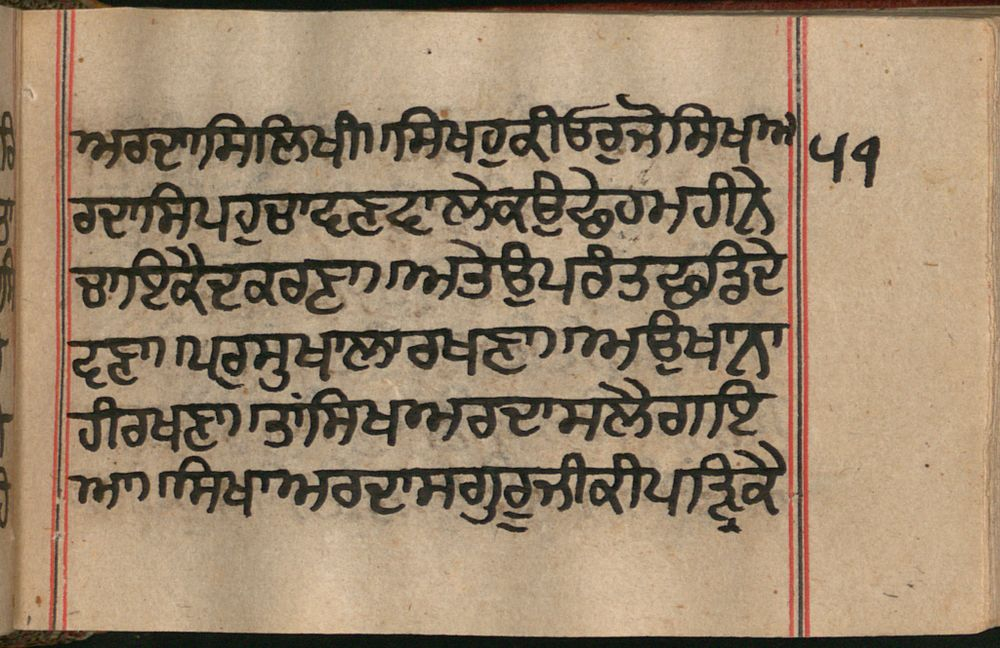 ਅਰਦਾਸਿਲਿਖੀ॥ਸਿਖਹੁਕੀਓਰੁਜੋਸਿਖਅ
ਰਦਾਸਿਪਹੁਚਾਵਣਵਾਲੇਕਉਛੇਹਮਹੀਨੇ
ਚਾਇਕੈਦਕਰਣਾ॥ਅਤੇਉਪਰੰਤਛਡਿਦੇ
ਵਣਾ॥ਪਰੁਸੁਖਾਲਾਰਖਣਾ॥ਅਉਖਾਨਾ
ਹੀਰਖਣਾ॥ਤਾਂਸਿਖਅਰਦਾਸਲੈਗਾਇ
ਆ॥ਸਿਖਾਅਰਦਾਸਗੁਰੂਜੀਕੀਪਾਤ੍ਰਿਕੈ
੫੧